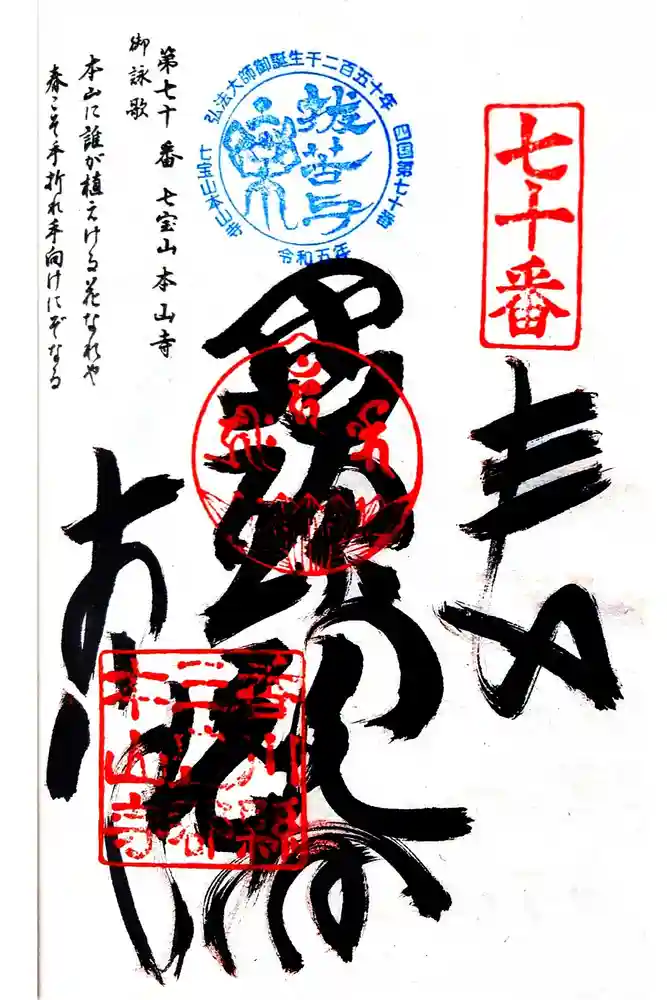 七十番
奉納
弘法大師御誕生千二百五十年
四国第七十番
七宝山本山寺
抜苦与楽
令和五年
本山寺
香川縣
三豊郡
本山寺
第七十番 七宝山本山寺
御詠歌
本山に誰が植えける花なれや
春こそ手折れ手向けにぞなる